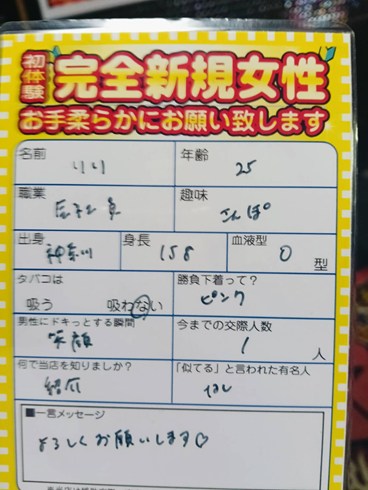 初体験 完全新規女性
お手柔らかにお願い致します
名前 りり 年齢 25
職業 会社員 趣味 さんぽ
出身 神奈川 身長 158 血液型 O 型
タバコは 吸う 吸わない
勝負下着って? ピンク
男性にドキっとする瞬間 笑顔
今までの交際人数 1 人
何で当店を知りましたか?
「似てる」と言われた有名人 なし
■一言メッセージ
よろしくお願いします♡